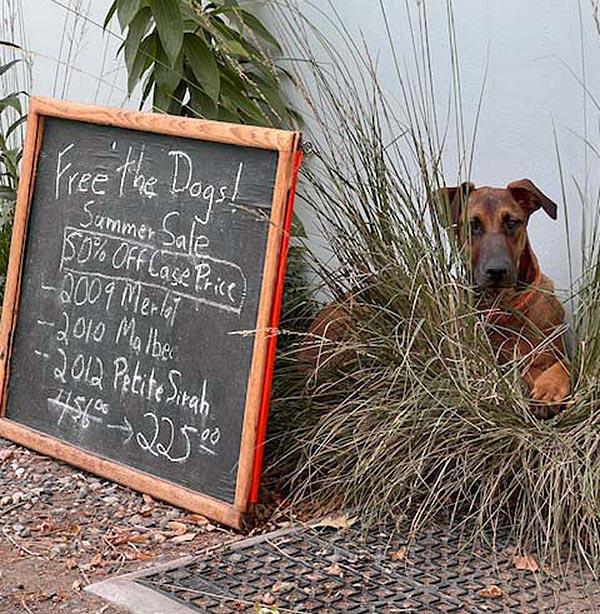 Free the Dogs!
Summer Sale
50% Off Case Price
- 2009 Merlot
- 2010 Malbec
- 2012 Petite Sirah
456⁰⁰ → 225⁰⁰